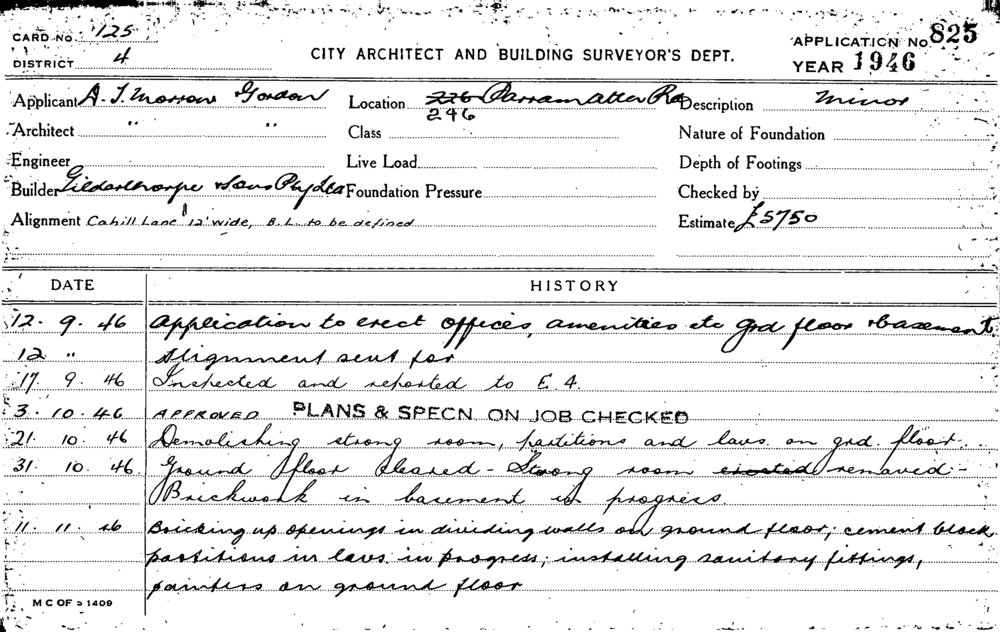 CARD NO. 125
DISTRICT 4
CITY ARCHITECT AND BUILDING SURVEYOR'S DEPT.
APPLICATION No 825
YEAR 1946
Applicant A. J. Morrow Gordon Location 226 Parramatta Rd Description Minor
246
Architect " " Class Nature of Foundation
Engineer Live Load Depth of Footings
Builder Gilderthorpe & Sons Pty Ltd Foundation Pressure Checked by
Alignment Cahill Lane 12' wide, B.L. to be defined Estimate £5750
DATE HISTORY
12. 9. 46 Application to erect offices, amenities etc grd floor & basement.
12 " Alignment sent for
17. 9. 46 Inspected and reported to E 4.
3. 10. 46 APPROVED PLANS & SPECN. ON JOB CHECKED
21. 10. 46 Demolishing strong room, partitions and lavs. on grd. floor.
31. 10. 46 Ground floor cleared - Strong room erected removed -
Brickwork in basement in progress
11. 11. 46 Bricking up openings in dividing walls on ground floor; cement block
partitions in lavs. in progress; installing sanitary fittings,
painters on ground floor
M C OF S 1409